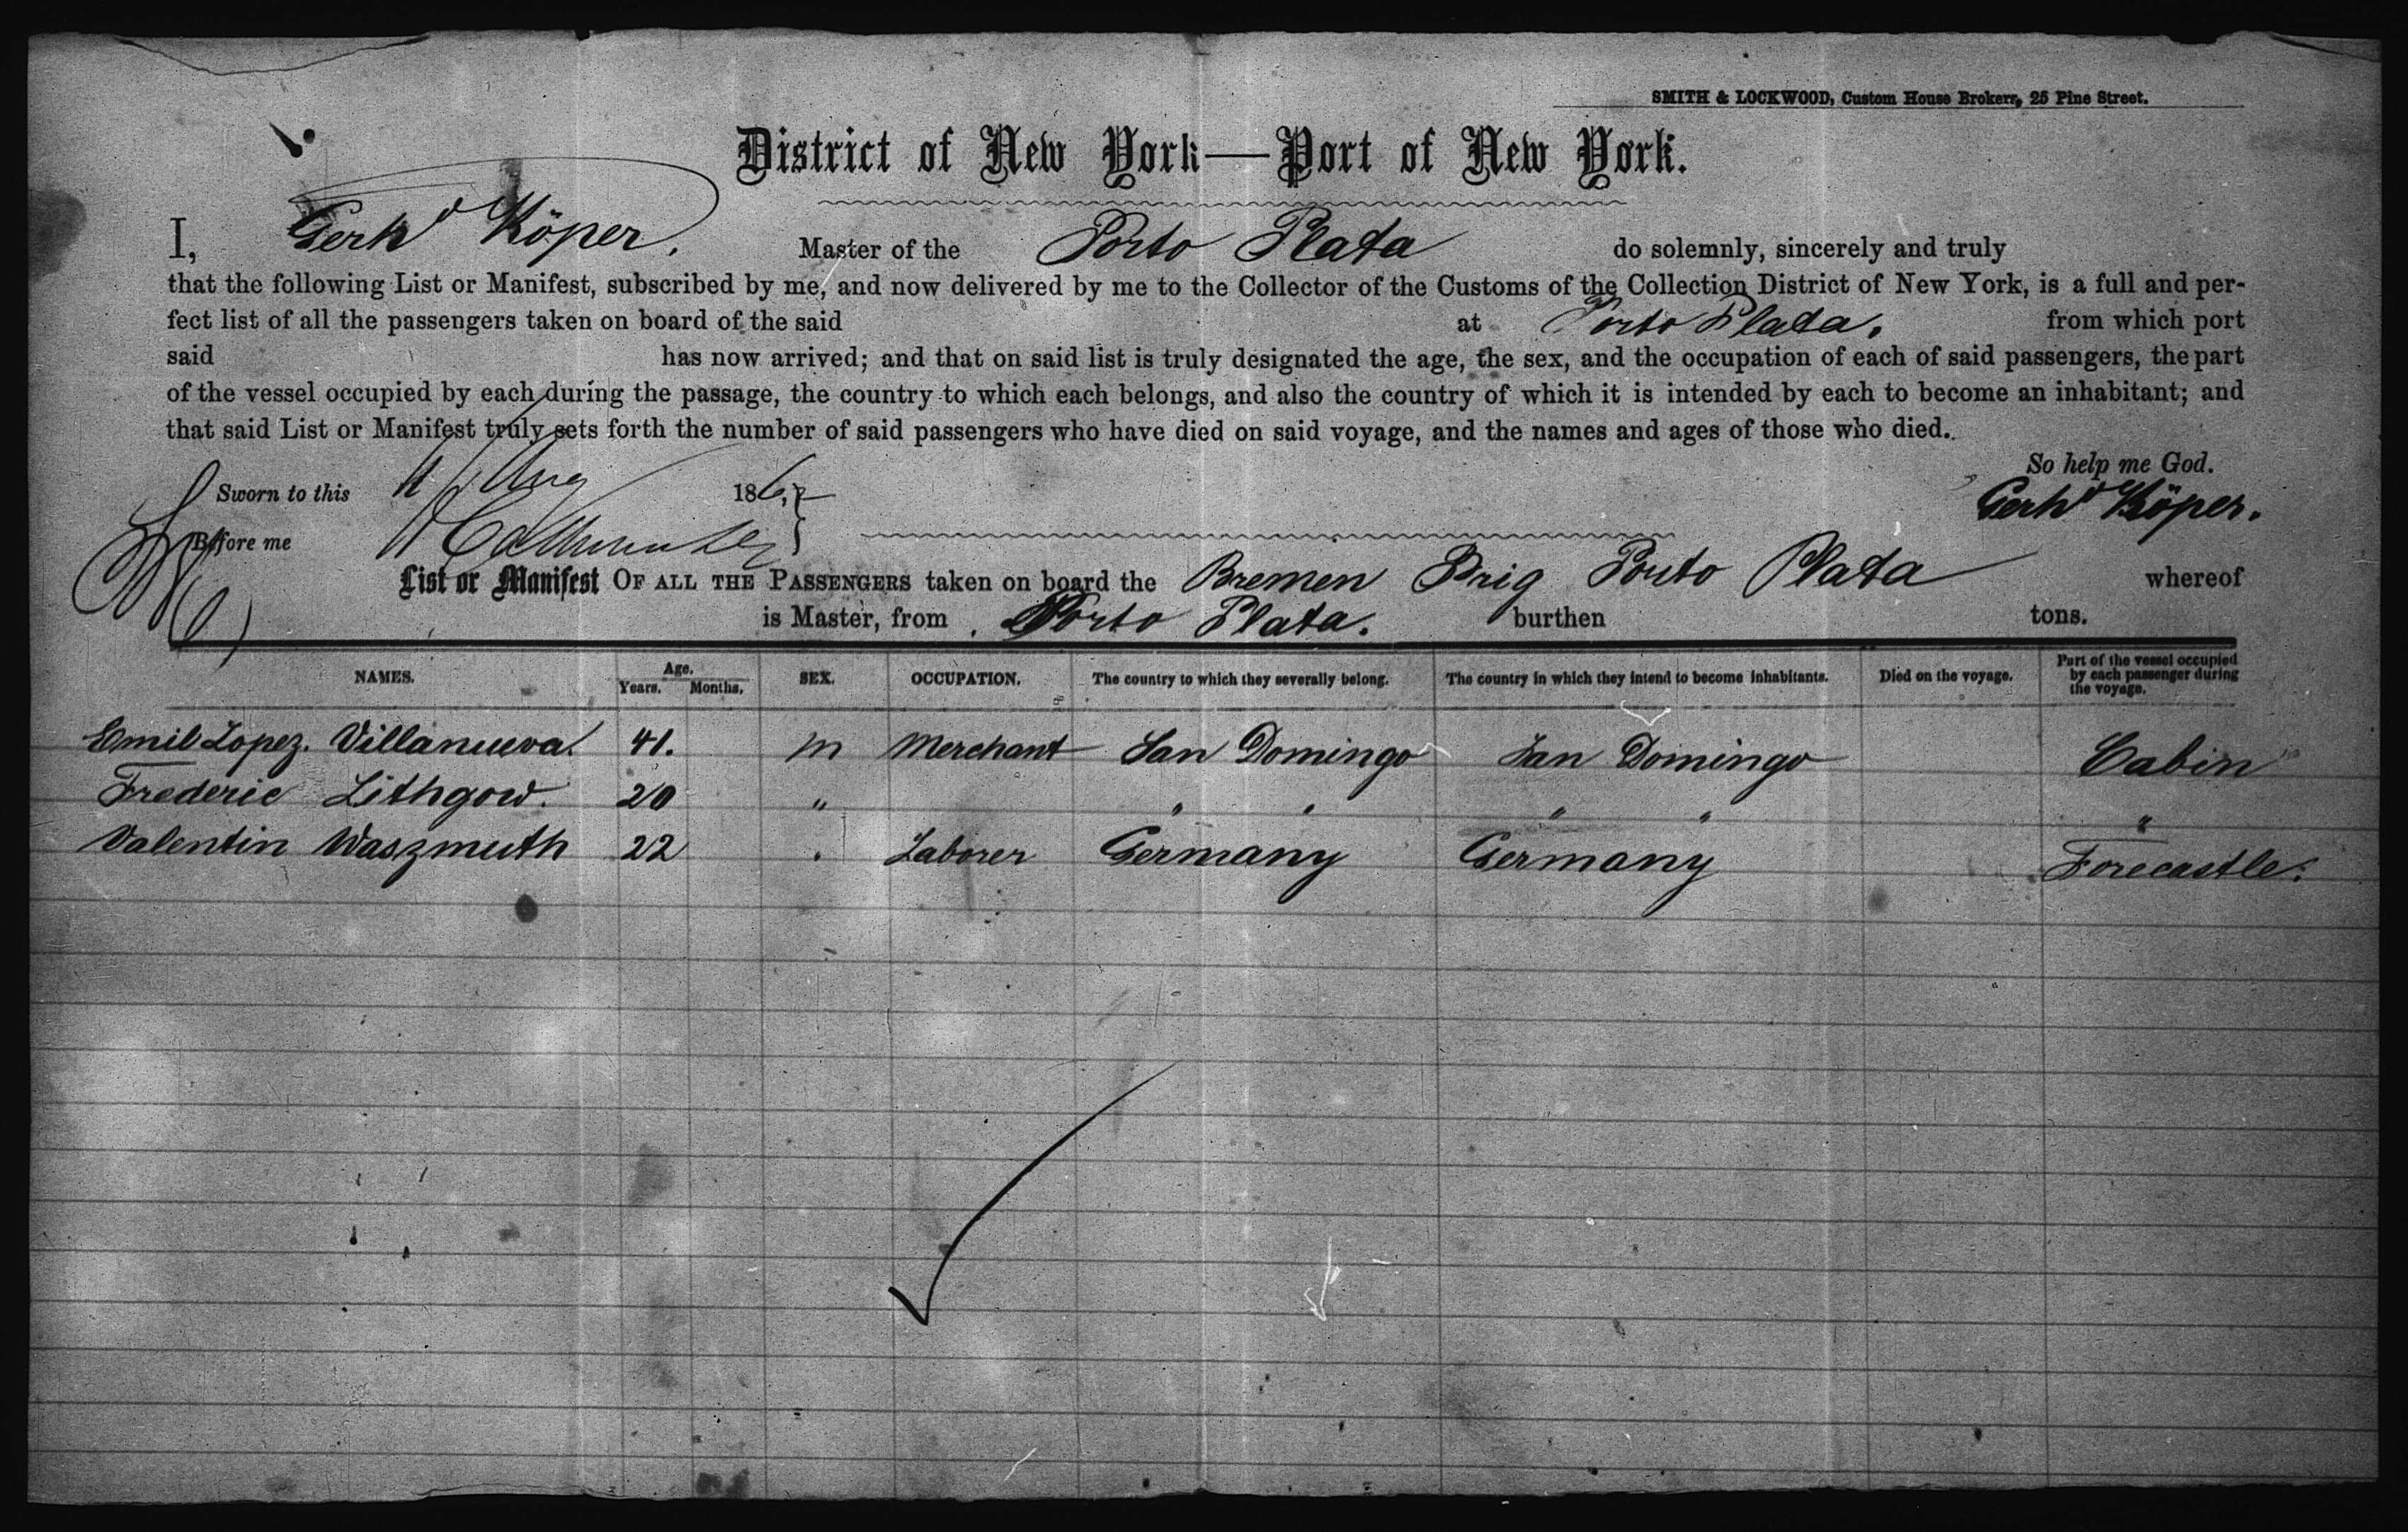 SMITH & LOCKWOOD, Custom House Brokers, 25 Pine Street.
District of New York—Port of New York.
I, Gerhd Köper, Master of the Porto Plata do solemnly, sincerely and truly
that the following List or Manifest, subscribed by me, and now delivered by me to the Collector of the Customs of the Collection District of New York, is a full and per-
fect list of all the passengers taken on board of the said at Porto Plata. from which port
said has now arrived; and that on said list is truly designated the age, the sex, and the occupation of each of said passengers, the part
of the vessel occupied by each during the passage, the country to which each belongs, and also the country of which it is intended by each to become an inhabitant; and
that said List or Manifest truly sets forth the number of said passengers who have died on said voyage, and the names and ages of those who died.
So help me God.
Sworn to this 11 Aug 186
Gerhd Köper.
Before me
List or Manifest OF ALL THE PASSENGERS taken on board the Bremen Brig Porto Plata whereof
is Master, from Porto Plata. burthen tons.
NAMES. Age. Years. Months. SEX. OCCUPATION. The country to which they severally belong. The country in which they intend to become inhabitants. Died on the voyage. Part of the vessel occupied by each passenger during the voyage.
Emil Lopez. Villanueva. 41. M Merchant San Domingo San Domingo Cabin
Frederic Lithgow. 20 " " " " " "
Valentin Waszmuth 22 " Laborer Germany Germany Forecastle.